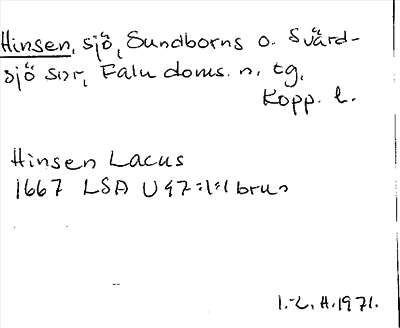 Hinsen, sjö, Sundborns o. Svärd-
sjö snr, Falu doms. n. tg,
Kopp. l.
Hinsen Lacus
1667 LSA U47:1:1 brun
I.-L. H. 1971.